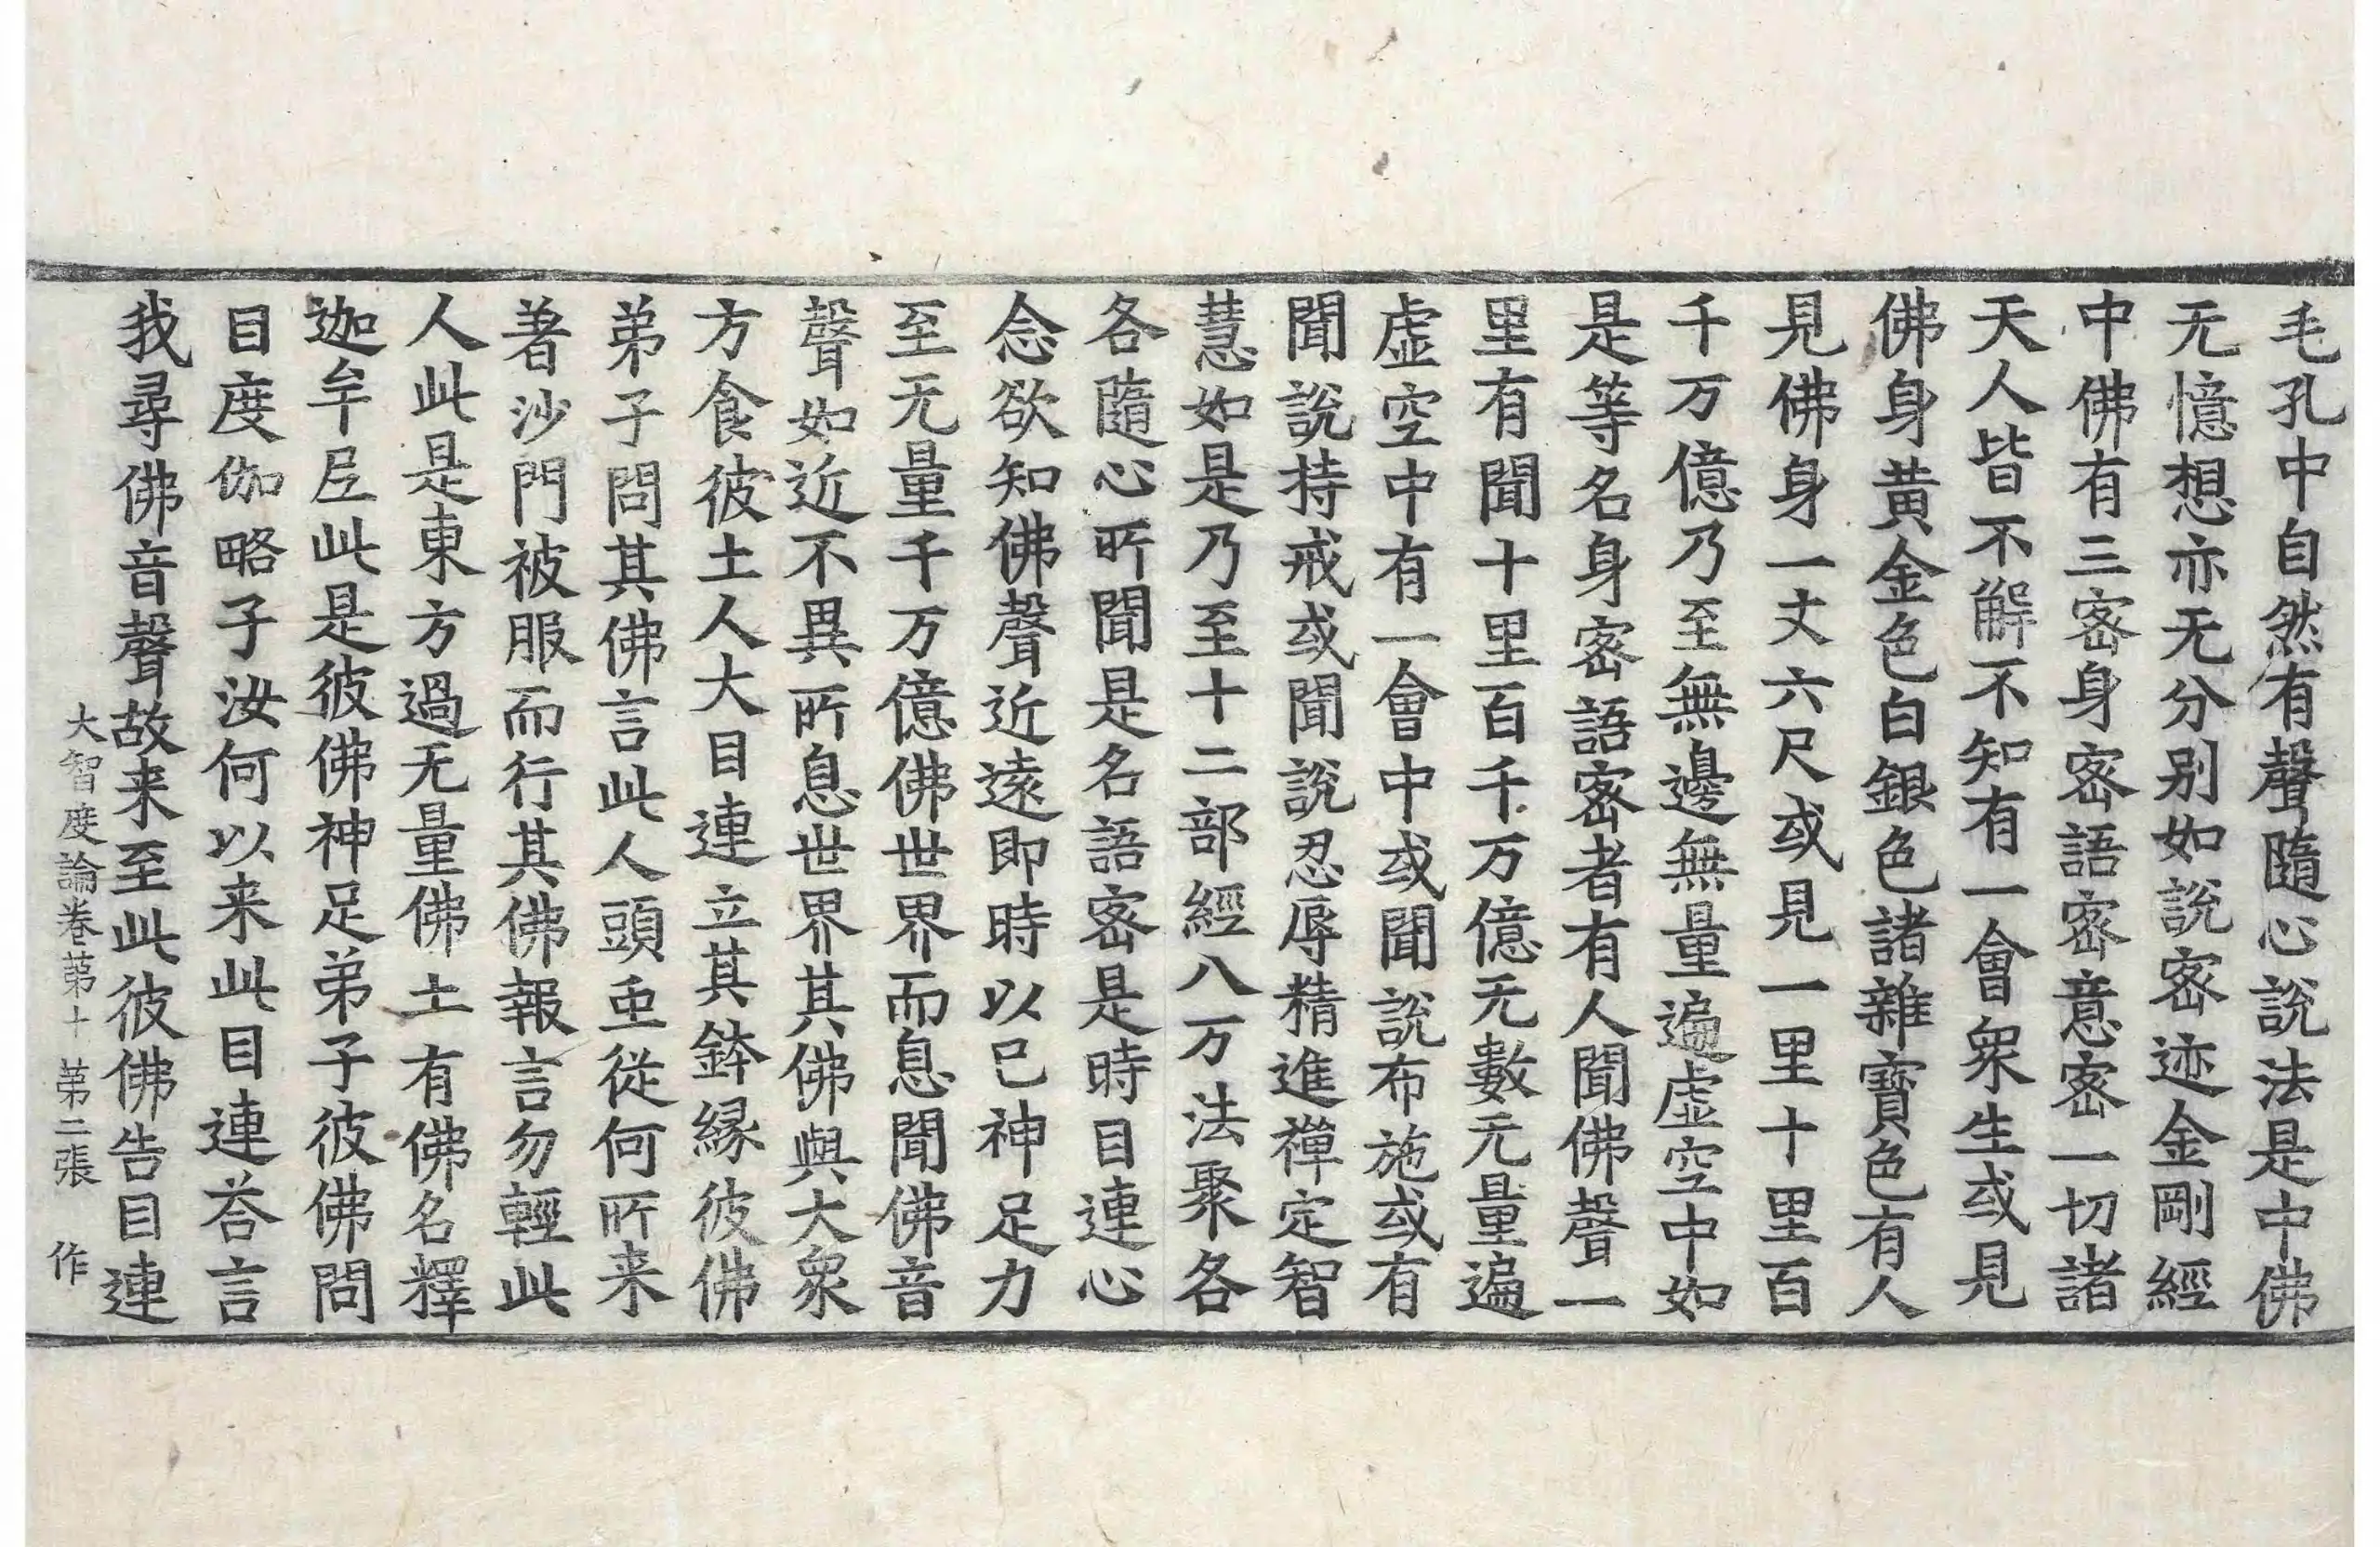 毛孔中自然有聲隨心說法是中佛
无憶想亦无分别如說密迹金剛經
中佛有三密身密語密意密一切諸
天人皆不解不知有一會衆生或見
佛身黃金色白銀色諸雜寶色有人
見佛身一丈六尺或見一里十里百
千万億乃至無邊無量遍虛空中如
是等名身密語密者有人聞佛聲一
里有聞十里百千万億无數无量遍
虛空中有一會中或聞說布施或有
聞說持戒或聞說忍辱精進禪定智
慧如是乃至十二部經八万法聚各
各隨心所聞是名語密是時目連心
念欲知佛聲近遠即時以己神足力
至无量千万億佛世界而息聞佛音
聲如近不異所息世界其佛與大衆
方食彼土人大目連立其鉢緣彼佛
弟子問其佛言此人頭虫從何所来
著沙門被服而行其佛報言勿輕此
人此是東方過无量佛土有佛名釋
迦牟尼此是彼佛神足弟子彼佛問
目度伽略子汝何以来此目連荅言
我尋佛音聲故来至此彼佛告目連
大智度論卷第十 第二張 作